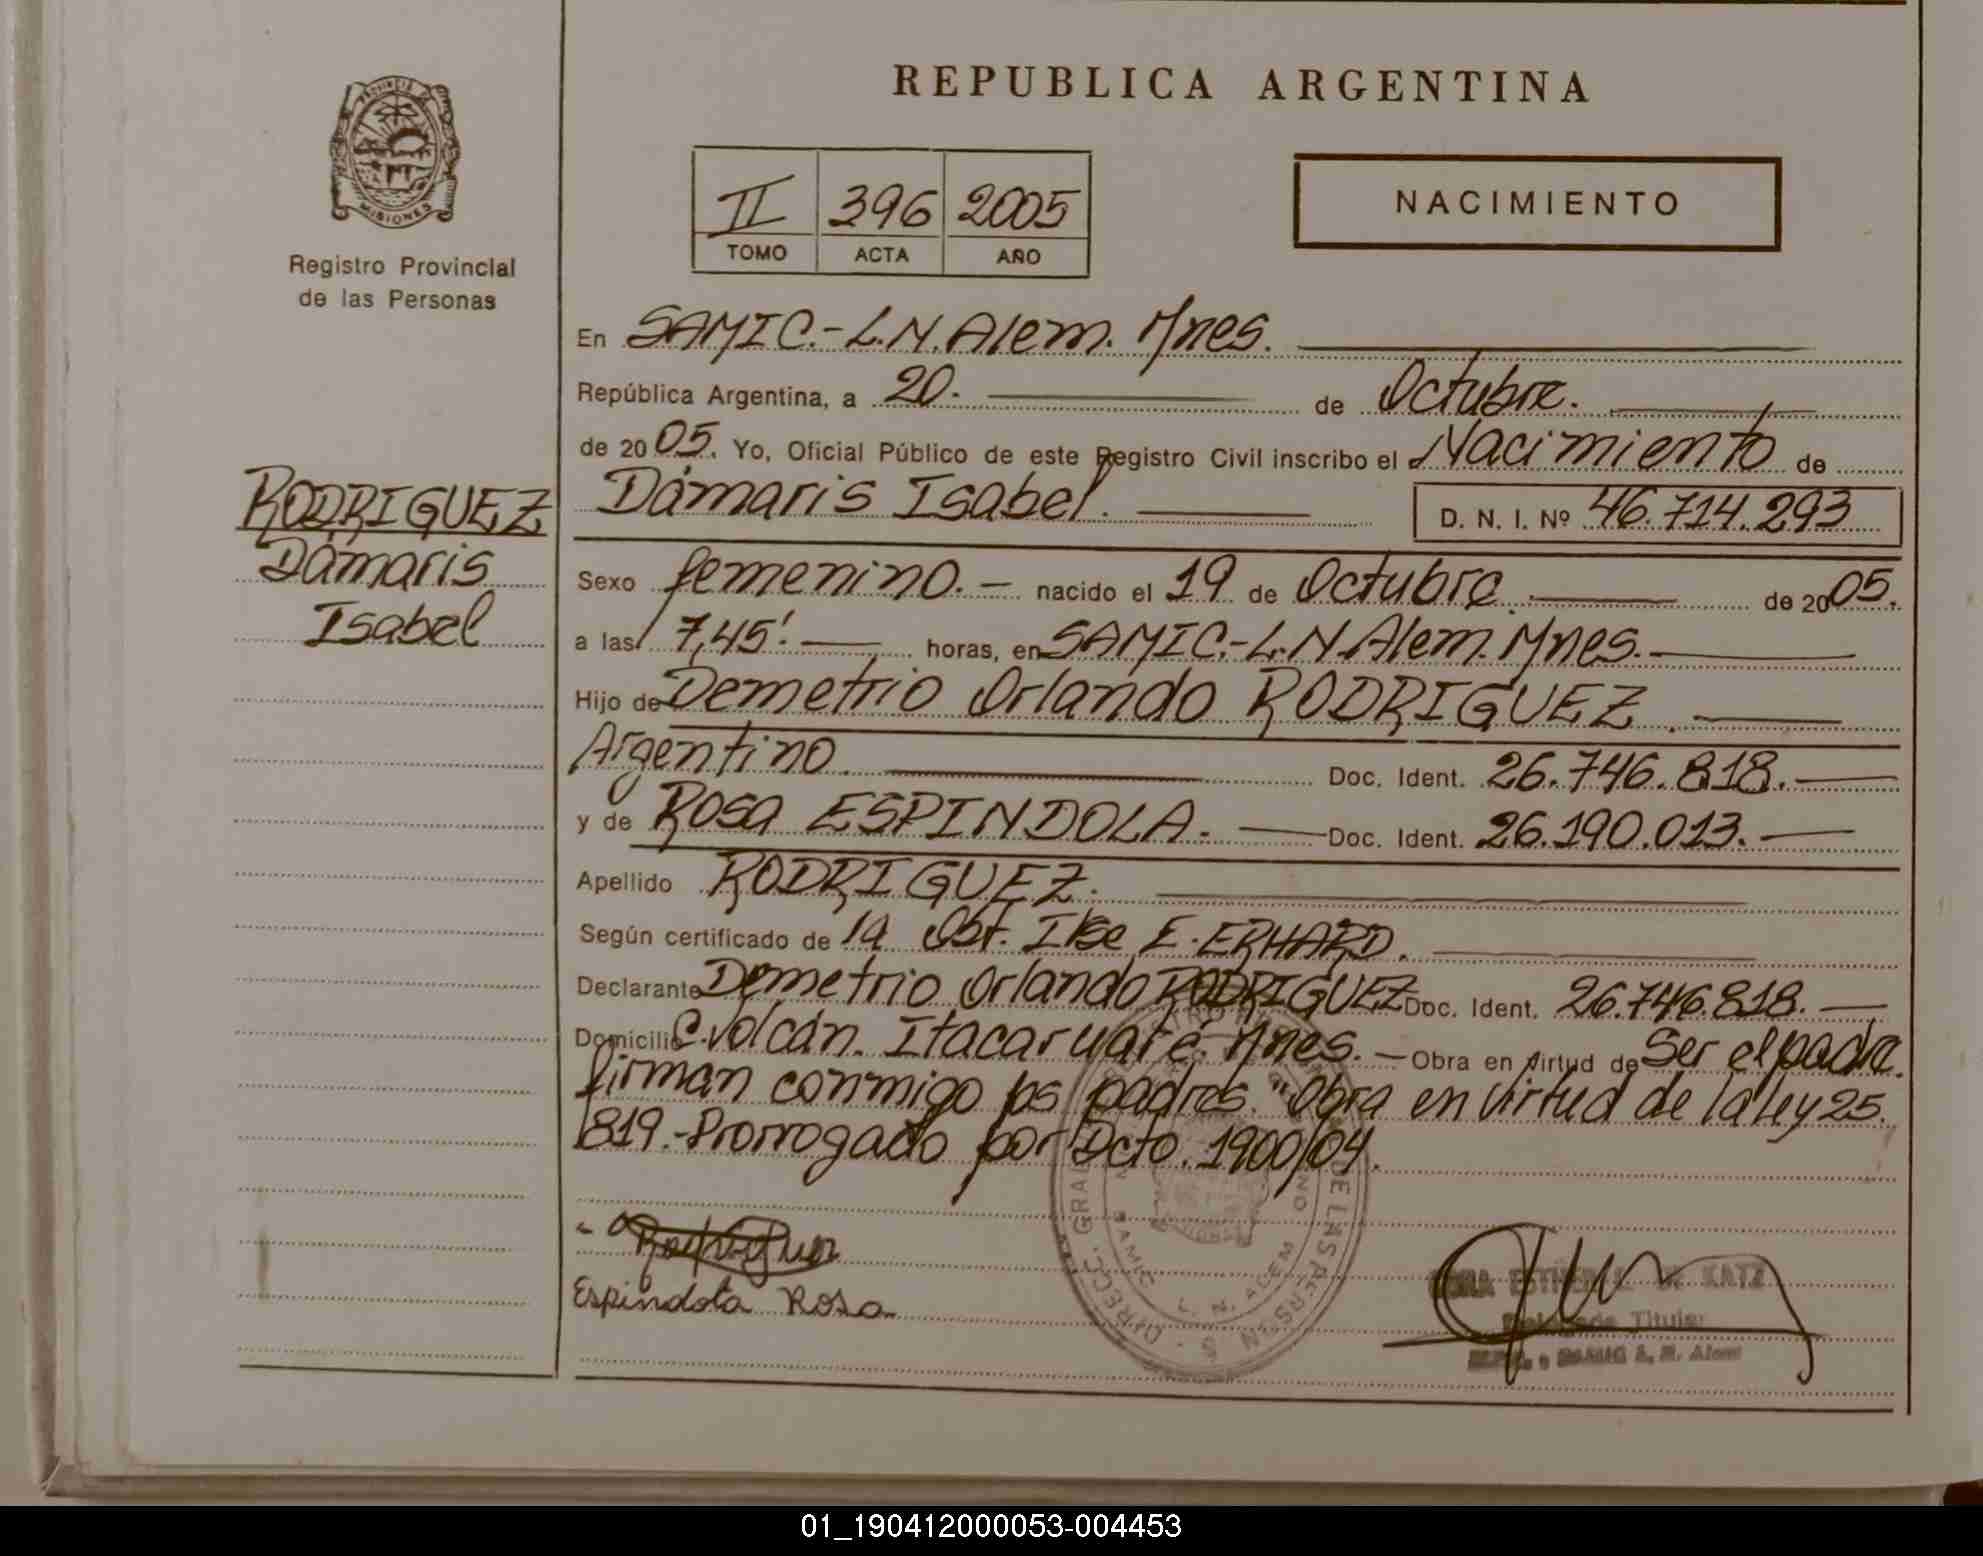 REPUBLICA ARGENTINA
PROVINCIA DE
MISIONES
Registro Provincial
de las Personas
II 396 2005
TOMO ACTA AÑO
NACIMIENTO
En SAMIC.- L.N.Alem. Mnes.
República Argentina, a 20. de Octubre.
de 2005. Yo, Oficial Público de este Registro Civil inscribo el Nacimiento de
RODRIGUEZ
Dámaris
Isabel
Dámaris Isabel. D. N. I. Nº 46.714.293
Sexo femenino.- nacido el 19 de Octubre. de 2005.
a las 7,45'. horas, en SAMIC.-L.N.Alem. Mnes.
Hijo de Demetrio Orlando RODRIGUEZ.
Argentino. Doc. Ident. 26.746.818.
y de Rosa ESPINDOLA. Doc. Ident. 26.190.013.
Apellido RODRIGUEZ.
Según certificado de la Obt. Ilse E. ERHARD.
Declarante Demetrio Orlando RODRIGUEZ Doc. Ident. 26.746.818.
Domicilio C.Volcán. Itacaruaré. Mnes. - Obra en virtud de Ser el padre.
firman conmigo los padres. "Obra en virtud de la ley 25.
819.-Prorrogado por Dcto. 1900/04.
Rodriguez
Espindola Rosa
DIRECC. GRAL. DE LAS PERSONAS
SAMIC
L. N. ALEM
ESTHER KATZ
Delegada Titular
SAMIC L. N. Alem
01_190412000053-004453